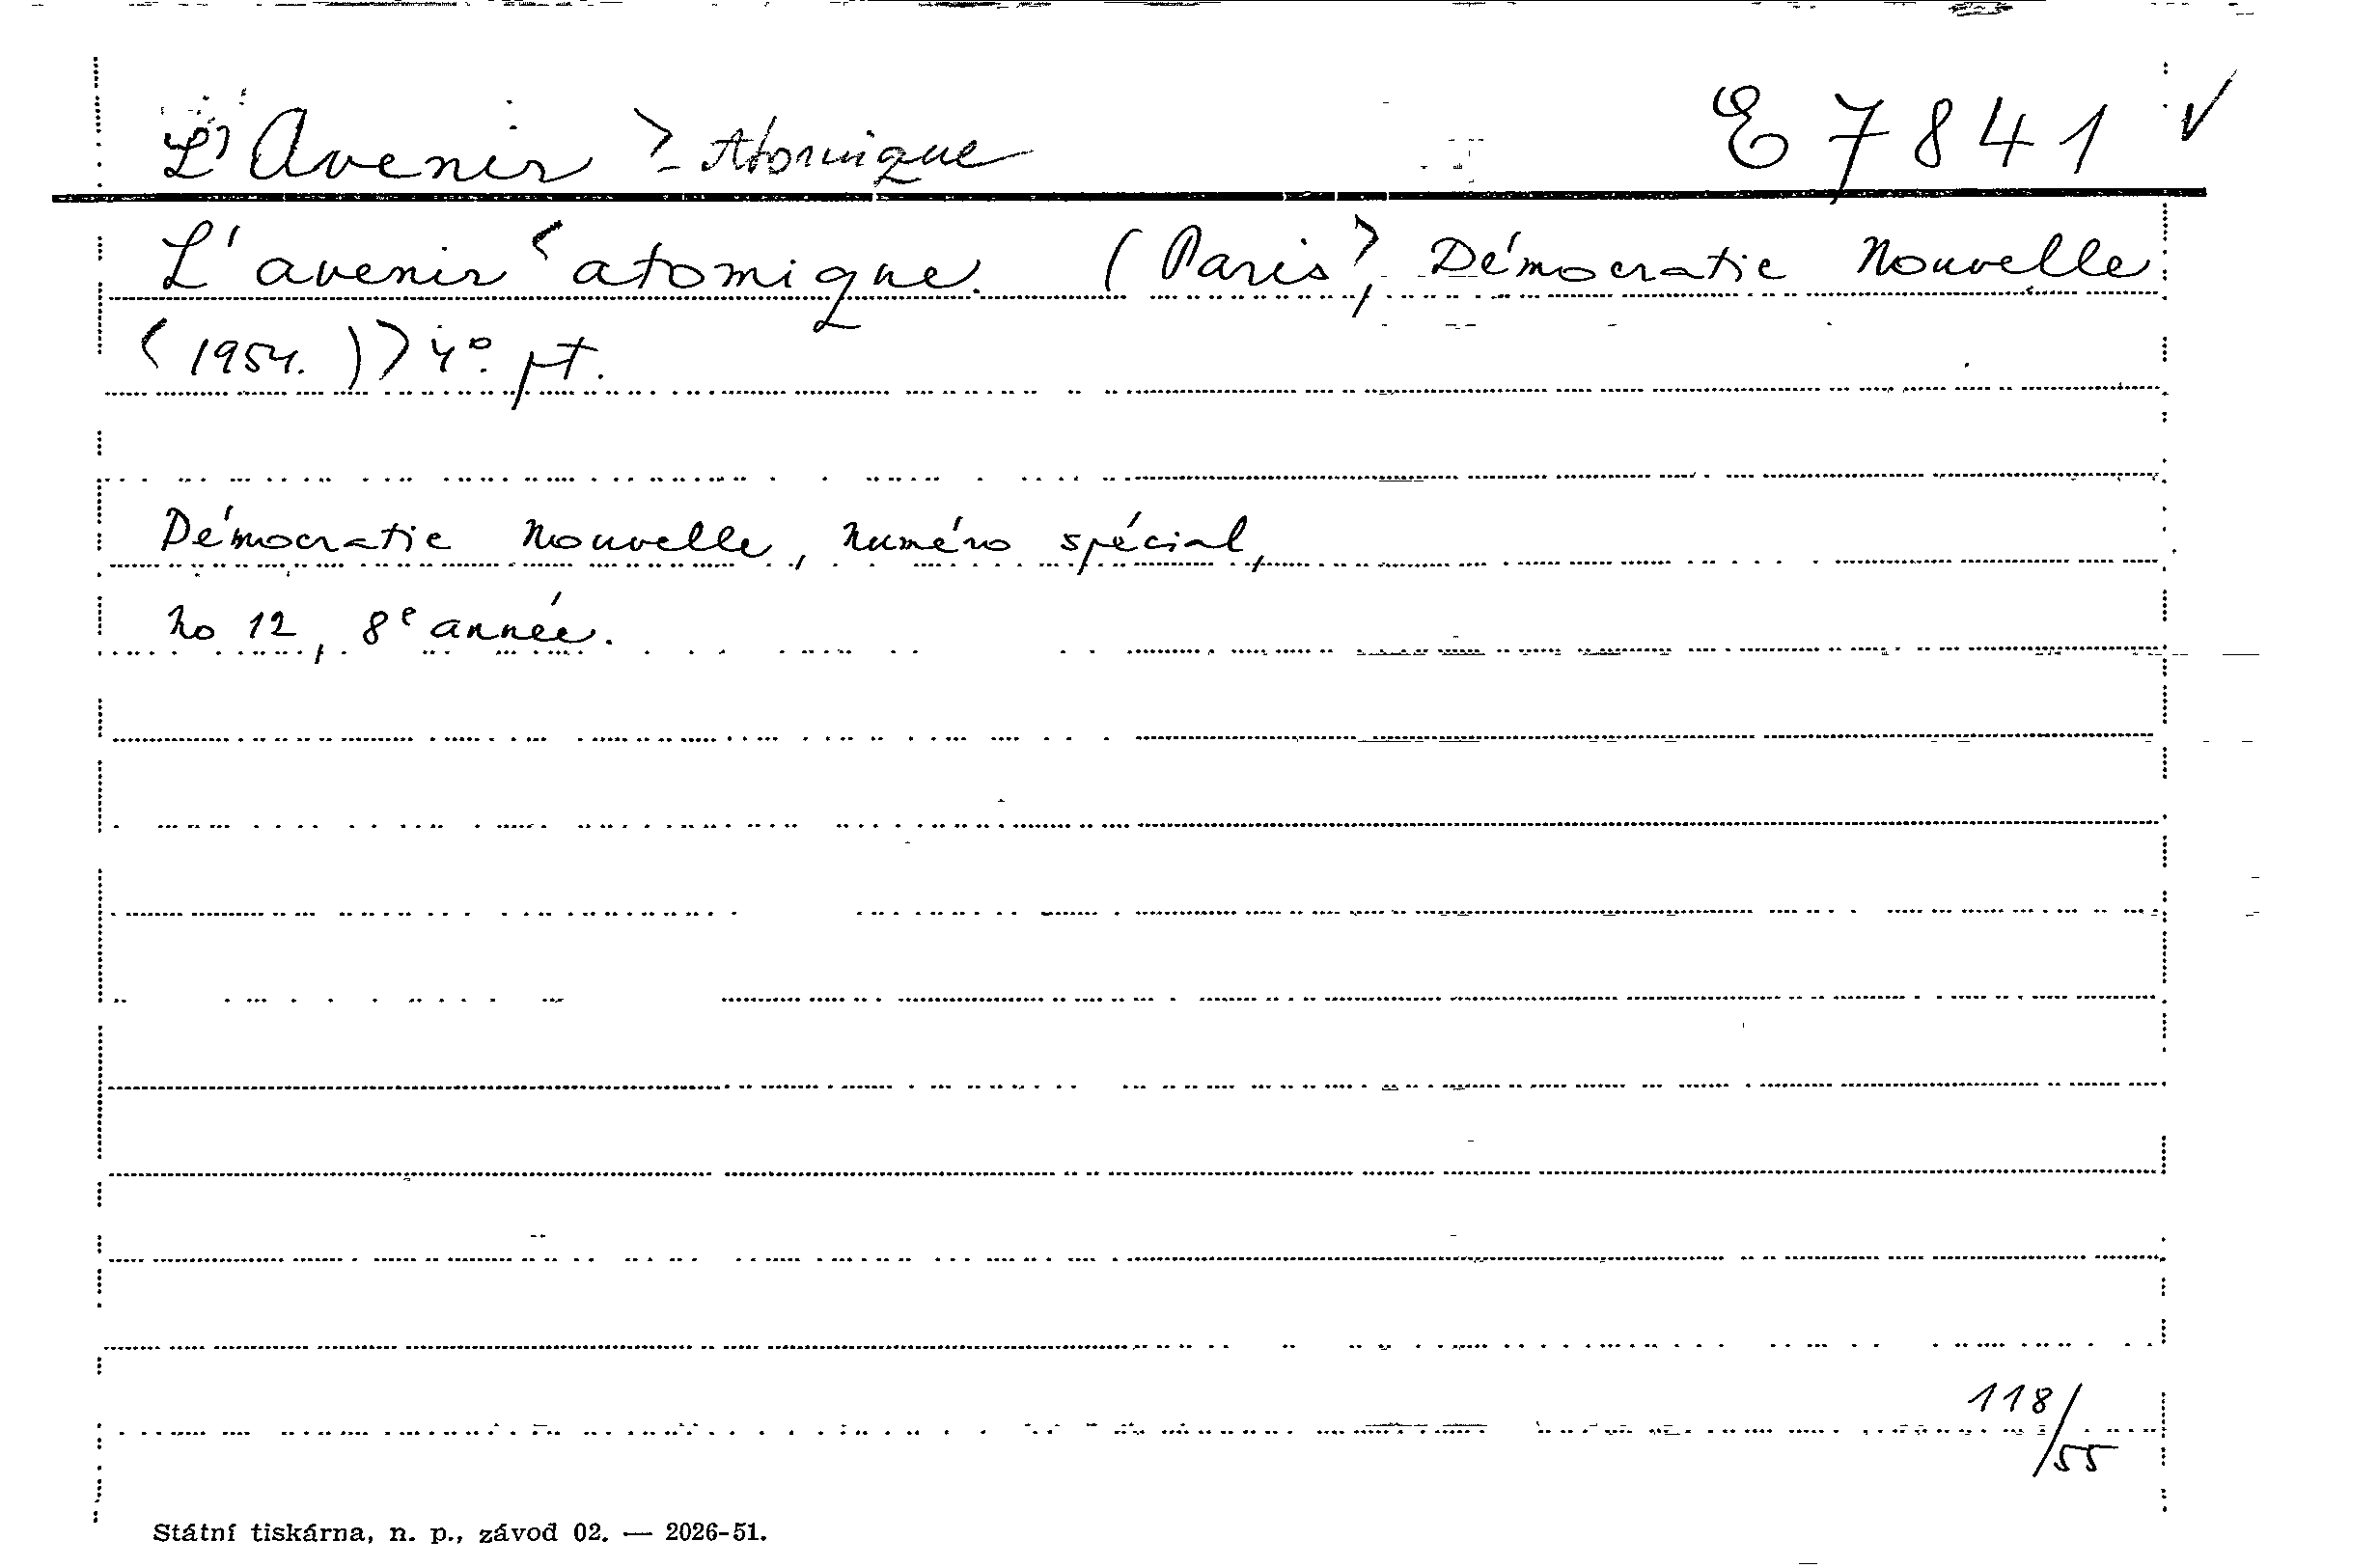 L'Avenir > - Atomique E 7841 ✓
L'avenir < atomique. (Paris>, Démocratie Nouvelle
<1954.)> 4°. pt.
Démocratie Nouvelle, numéro spécial,
no 12, 8e année.
118/55
Státní tiskárna, n. p., závod 02. — 2026-51.